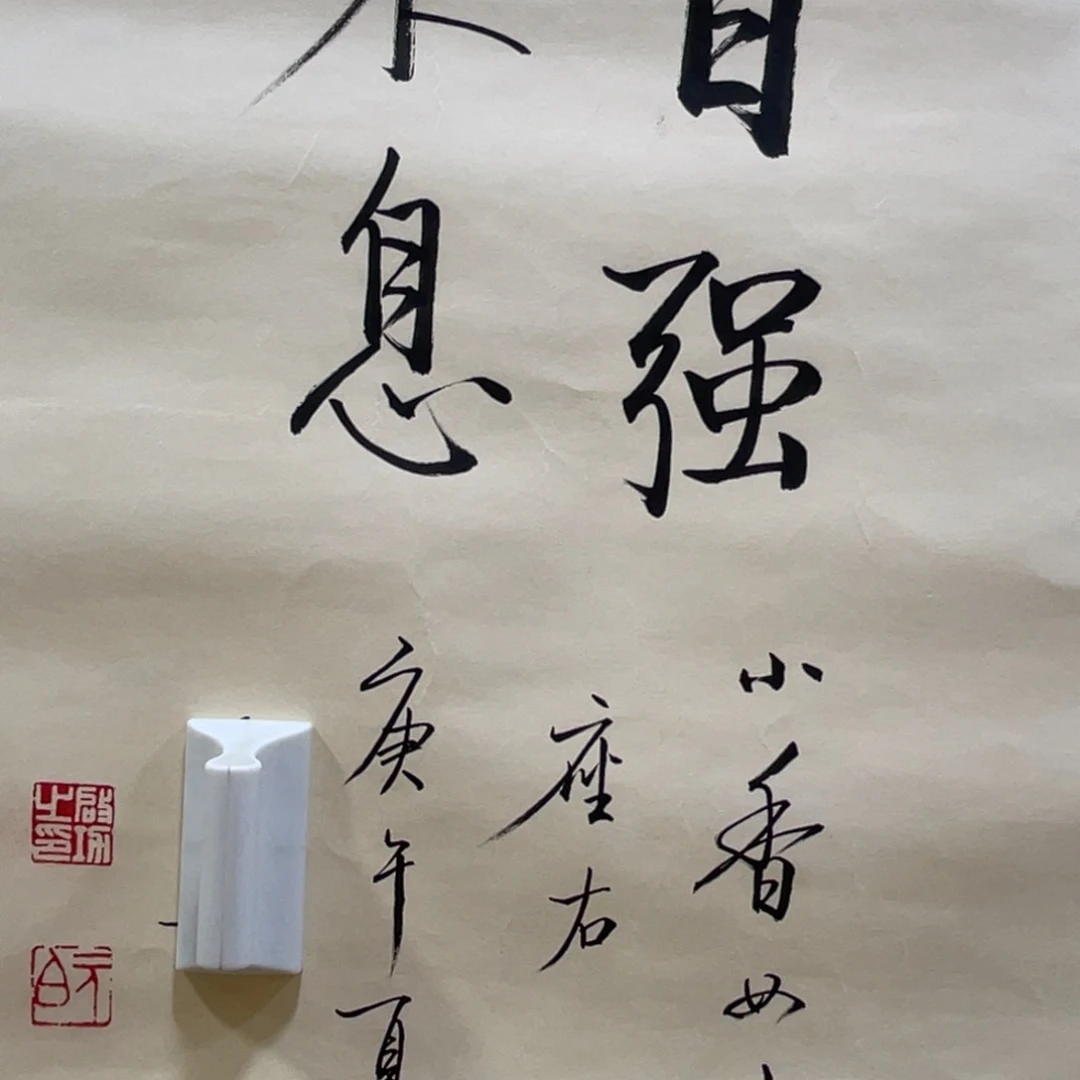 自强
不息
小香女
座右
庚午夏
启功之印
元白